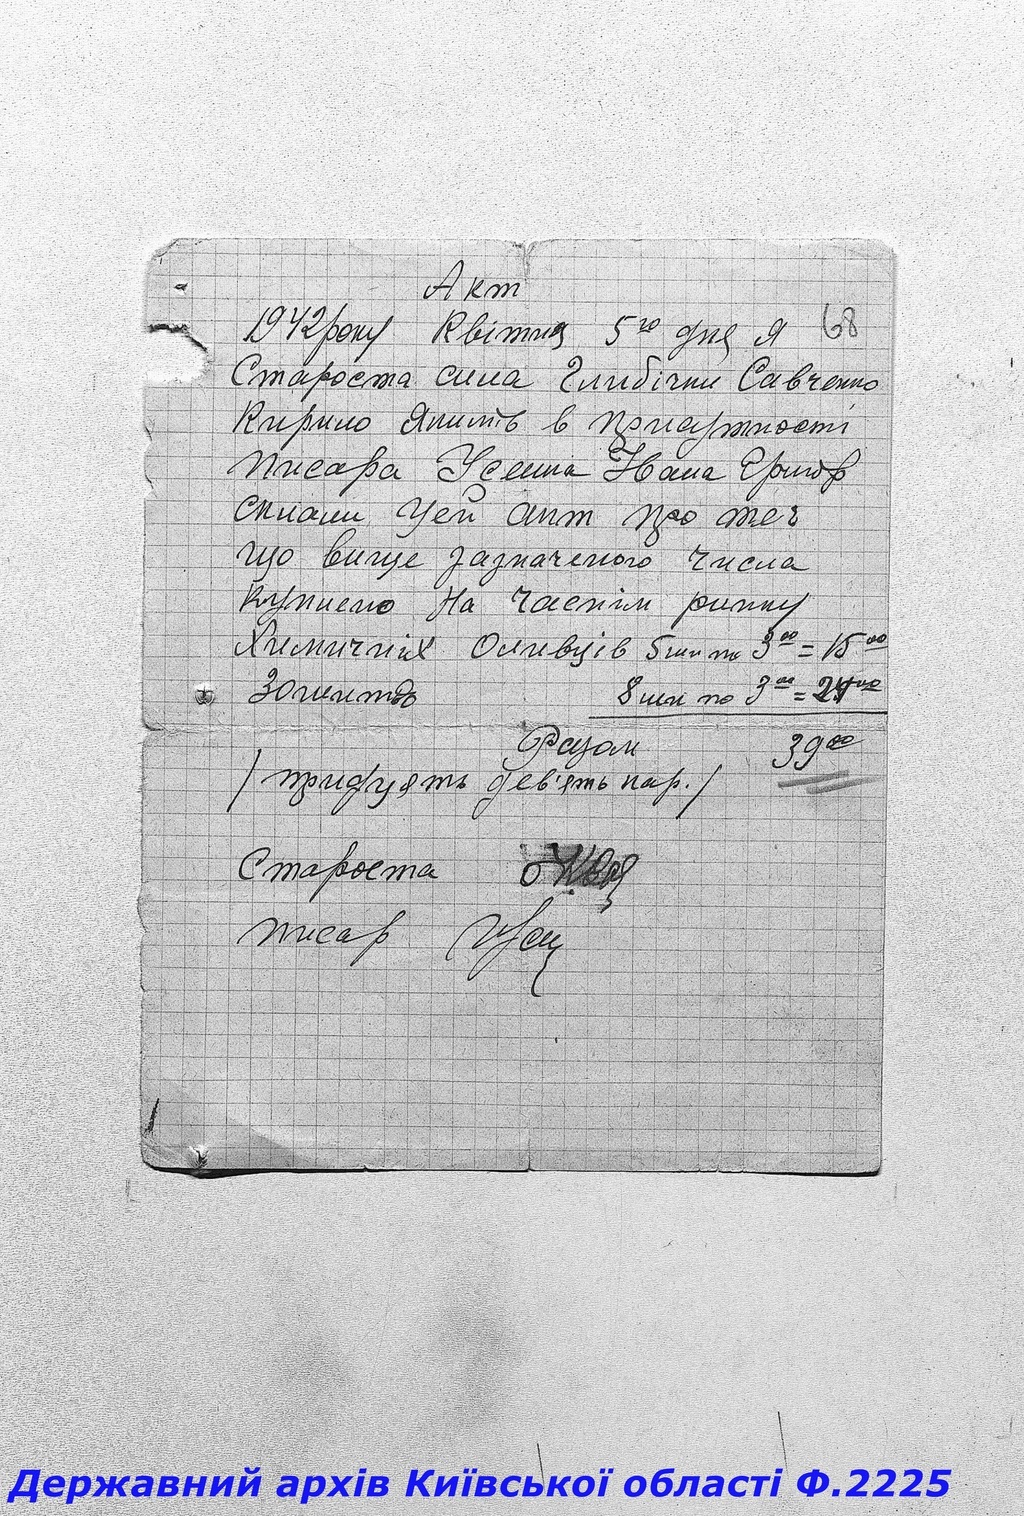 Акт
1942 року Квітня 5го дня Я 68
Староста села Глибічки Савченко
Кирило Якимів в присутності
писара Усенка Івана Григор
склали цей акт про те
що вище зазначеного числа
куплено на часнім ринку
Химичніх Оливців 5 шт по 3 00 = 15 00
Зошитів 8 шт по 3 00 = 24 00
Разом 39 00
/ тридцять дев'ять кар. /
Староста
писар Усе
Державний архів Київської області Ф.2225